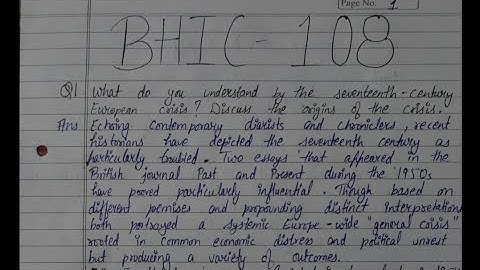 Page No. 1
BHIC-108
Q1 What do you understand by the seventeenth-century
European crisis? Discuss the origins of the crisis.
Ans Echoing contemporary diarists and chroniclers, recent
historians have depicted the seventeenth century as
particularly troubled. Two essays that appeared in the
British journal Past and Present during the 1950s
have proved particularly influential. Though based on
different premises and propounding distinct interpretations
both portrayed a systemic Europe-wide "general crisis"
rooted in common economic distress and political unrest
but producing a variety of outcomes.